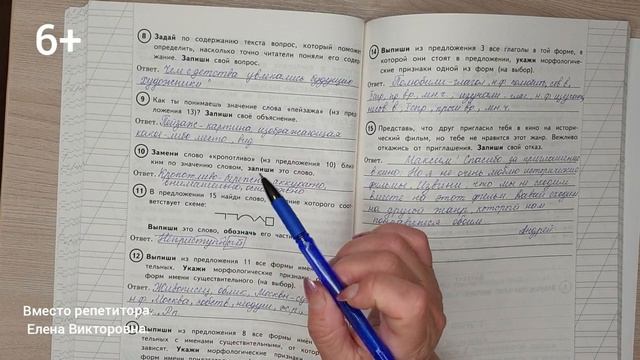 6+
8 Задай по содержанию текста вопрос, который поможет
определить, насколько точно читатели поняли его содер-
жание. Запиши свой вопрос.
Ответ. Чем с детства увлекались будущие
художники?
9 Как ты понимаешь значение слова «пейзажа» (из пред-
ложения 13)? Запиши свое объяснение.
Ответ. Пейзаж-картина изображающая
какое-либо место, вид
10 Замени слово «кропотливо» (из предложения 10) близ-
ким по значению словом, запиши это слово.
Ответ. Кропотливо-
внимательно,
11 В предложении 15 найди слово, строение которого соот-
ветствует схеме:
Выпиши это слово, обозначь его части.
Ответ. Неприступный
12 Выпиши из предложения 11 все формы имён
тельных. Укажи морфологические признаки
форм имени существительного (на выбор).
Ответ. Живописец, облик, Москвы-
н.ф. Москва,
Выпиши из предложения 8 все формы имён
тельных с именами существительными, от которых
зависят. Укажи морфологические
форм имени
14 Выпиши из предложения 3 все глаголы в той форме, в
которой они стоят в предложении, укажи морфологиче-
ские признаки одной из форм (на выбор).
Ответ. Полюбили-глагол, н.ф. полюбить,
мн.ч.
мн.ч.
15 Представь, что друг пригласил тебя в кино на истори-
ческий фильм, но тебе не нравится этот жанр. Вежливо
откажись от приглашения. Запиши свой отказ.
Ответ. Максим! Спасибо за приглашение
в кино. Но я не очень люблю исторические
фильмы. Извини, что мы не сходим
вместе на этот фильм. Давай сходим
на другой жанр, который нам
понравится обоим.
Андрей
Вместо репетитора.
Елена Викторовна